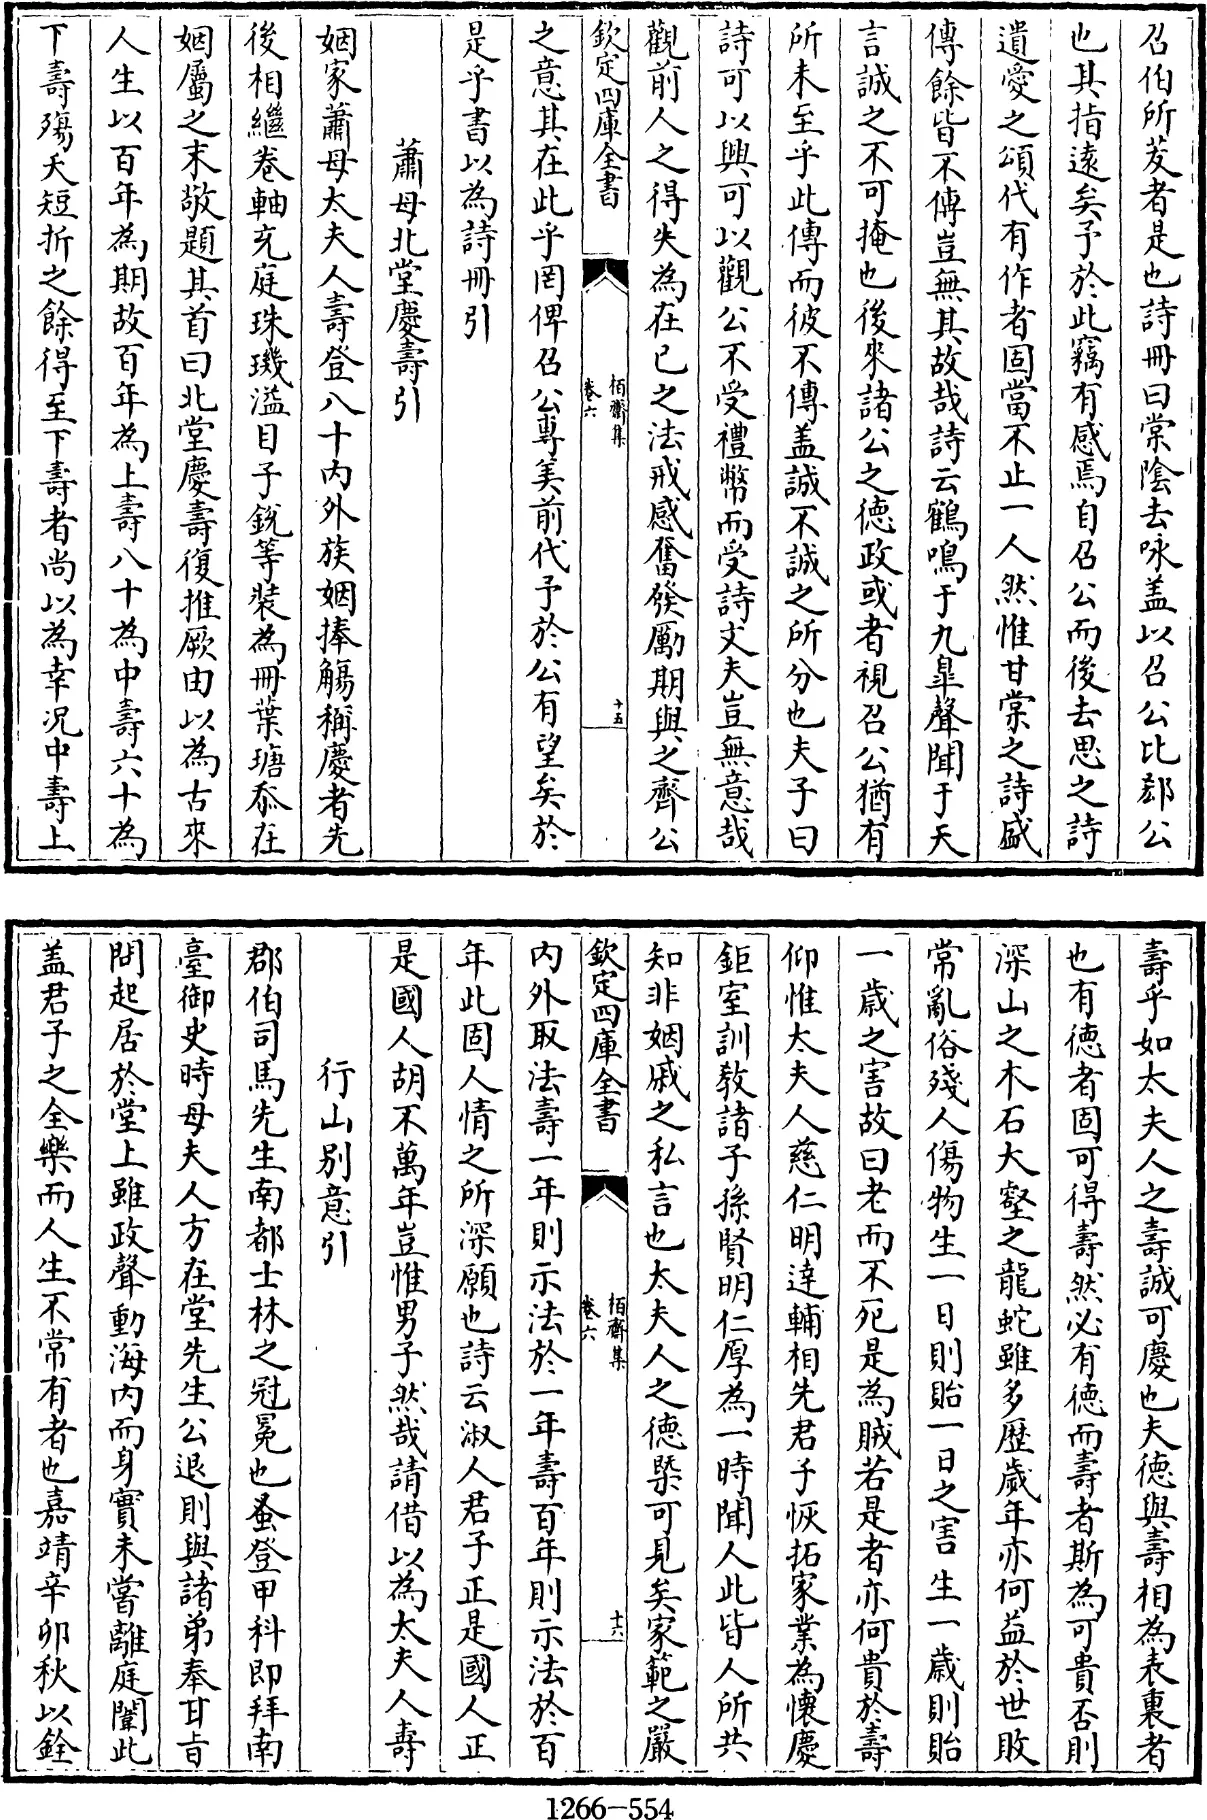 召伯所茇者是也詩冊曰棠陰去咏盖以召公比郄公
也其指遠矣予於此竊有感焉自召公而後去思之詩
遺愛之頌代有作者固當不止一人然惟甘棠之詩盛
傳餘皆不傳豈無其故哉詩云鶴鳴于九臯聲聞于天
言誠之不可掩也後來諸公之德政或者視召公猶有
所未至乎此傳而彼不傳盖誠不誠之所分也夫子曰
詩可以興可以觀公不受禮幣而受詩丈夫豈無意哉
觀前人之得失為在已之法戒感奮發勵期與之齊公
欽定四庫全書
栢齋集
卷六
十五
之意其在此乎罔俾召公專美前代予於公有望矣於
是乎書以為詩冊引
蕭母北堂慶壽引
姻家蕭母太夫人壽登八十內外族姻捧觴稱慶者先
後相繼卷軸充庭珠璣溢目子銳等裝為冊葉瑭忝在
姻屬之末敬題其首曰北堂慶壽復推厥由以為古來
人生以百年為期故百年為上壽八十為中壽六十為
下壽殤夭短折之餘得至下壽者尚以為幸况中壽上
壽乎如太夫人之壽誠可慶也夫德與壽相為表裏者
也有德者固可得壽然必有德而壽者斯為可貴否則
深山之木石大壑之龍蛇雖多歷歲年亦何益於世敗
常亂俗殘人傷物生一日則貽一日之害生一歲則貽
一歲之害故曰老而不死是為賊若是者亦何貴於壽
仰惟太夫人慈仁明逹輔相先君子恢拓家業為懷慶
鉅室訓教諸子孫賢明仁厚為一時聞人此皆人所共
知非姻戚之私言也太夫人之德槩可見矣家範之嚴
欽定四庫全書
栢齋集
卷六
十六
內外取法壽一年則示法於一年壽百年則示法於百
年此固人情之所深願也詩云淑人君子正是國人正
是國人胡不萬年豈惟男子然哉請借以為太夫人壽
行山別意引
郡伯司馬先生南都士林之冠冕也蚤登甲科即拜南
臺御史時母夫人方在堂先生公退則與諸弟奉甘旨
問起居於堂上雖政聲動海內而身實未嘗離庭闈此
盖君子之全樂而人生不常有者也嘉靖辛卯秋以銓
1266-554